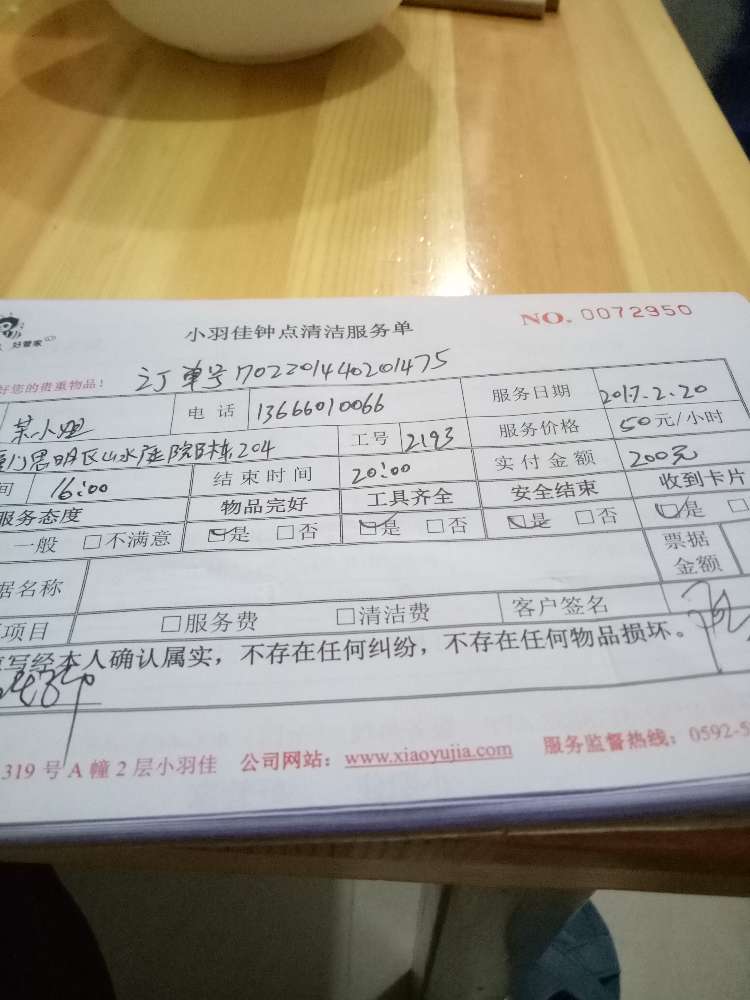 小羽佳钟点清洁服务单 NO. 0072950
好管家
好您的贵重物品! 订单号1702201440201475
电话 13666010066 服务日期 2017.2.20
思明区山水庭院 204 工号 2193 服务价格 50元/小时
间 16:00 结束时间 20:00 实付金额 200元
服务态度 物品完好 工具齐全 安全结束 收到卡片
一般 □不满意 ☑是 □否 ☑是 □否 ☑是 □否 ☑是 □
据名称 票据金额
项目 □服务费 □清洁费 客户签名
写经本人确认属实，不存在任何纠纷，不存在任何物品损坏。
319号A幢2层小羽佳 公司网站：www.xiaoyujia.com 服务监督热线：0592-5